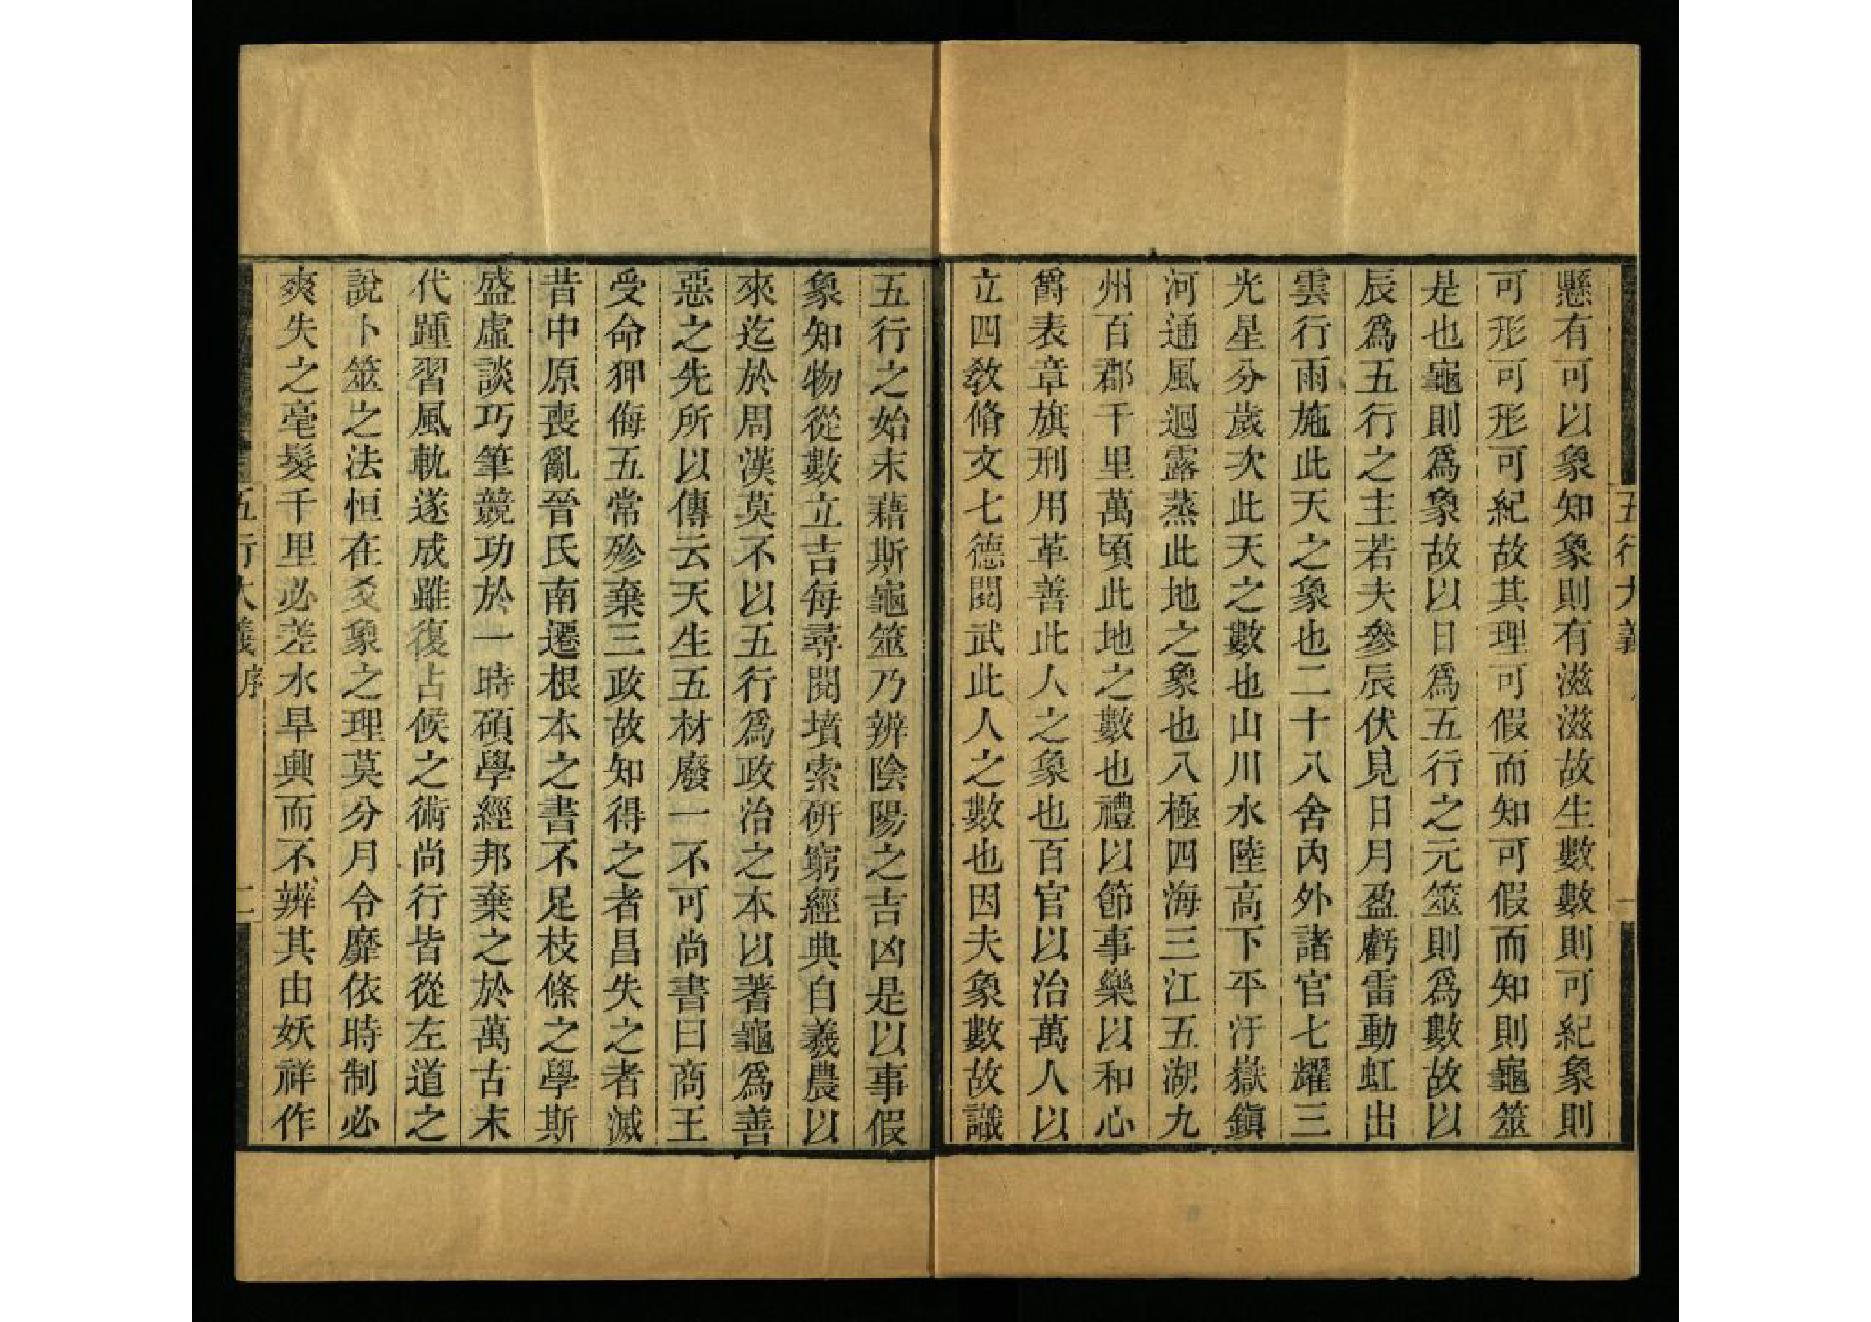 懸有可以象知象則有滋滋故生數數則可紀象則
可形可形可紀故其理可假而知可假而知則龜筮
是也龜則爲象故以日爲五行之元筮則爲數故以
辰爲五行之主若夫參辰伏見日月盈虧雷動虹出
雲行雨施此天之象也二十八舍內外諸官七耀三
光星分歲次此天之數也山川水陸高下平汙嶽鎭
河通風迴露蒸此地之象也八極四海三江五湖九
州百郡千里萬頃此地之數也禮以節事樂以和心
爵表章旗刑用革善此人之象也百官以治萬人以
立四敎脩文七德閱武此人之數也因夫象數故識
五行之始末藉斯龜筮乃辨陰陽之吉凶是以事假
象知物從數立吉每尋閱墳索硏窮經典自羲農以
來迄於周漢莫不以五行爲政治之本以蓍龜爲善
惡之先所以傳云天生五材廢一不可尚書曰商王
受命狎侮五常殄棄三政故知得之者昌失之者滅
昔中原喪亂晉氏南遷根本之書不足枝條之學斯
盛虛談巧筆競功於一時碩學經邦棄之於萬古末
代踵習風軌遂成雖復占候之術尚行皆從左道之
說卜筮之法恒在爻象之理莫分月令靡依時制必
爽失之毫髮千里必差水旱興而不辨其由妖祥作
五行大義序 二